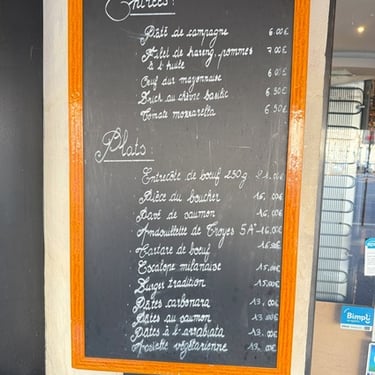 Entrées :
. Pâté de campagne 6.00€
. Filet de hareng, pommes 7.00€
à l'huile
. Oeuf dur mayonnaise 6.00€
. Brick au chèvre basilic 6.50€
. Tomate mozzarella 6.50€
Plats :
. Entrecôte de boeuf 250g 21.00€
. Pièce du boucher 16.00€
. Pavé de saumon 16.00€
. Andouillette de Troyes 5A 16.00€
. Tartare de boeuf 16.00€
. Escalope milanaise 15.00€
. Burger tradition 15.00€
. Pâtes carbonara 13.00€
. Pâtes au saumon 13.00€
. Pâtes à l'arrabiata 12.00€
. Assiette végétarienne 12.00€
Bimpli